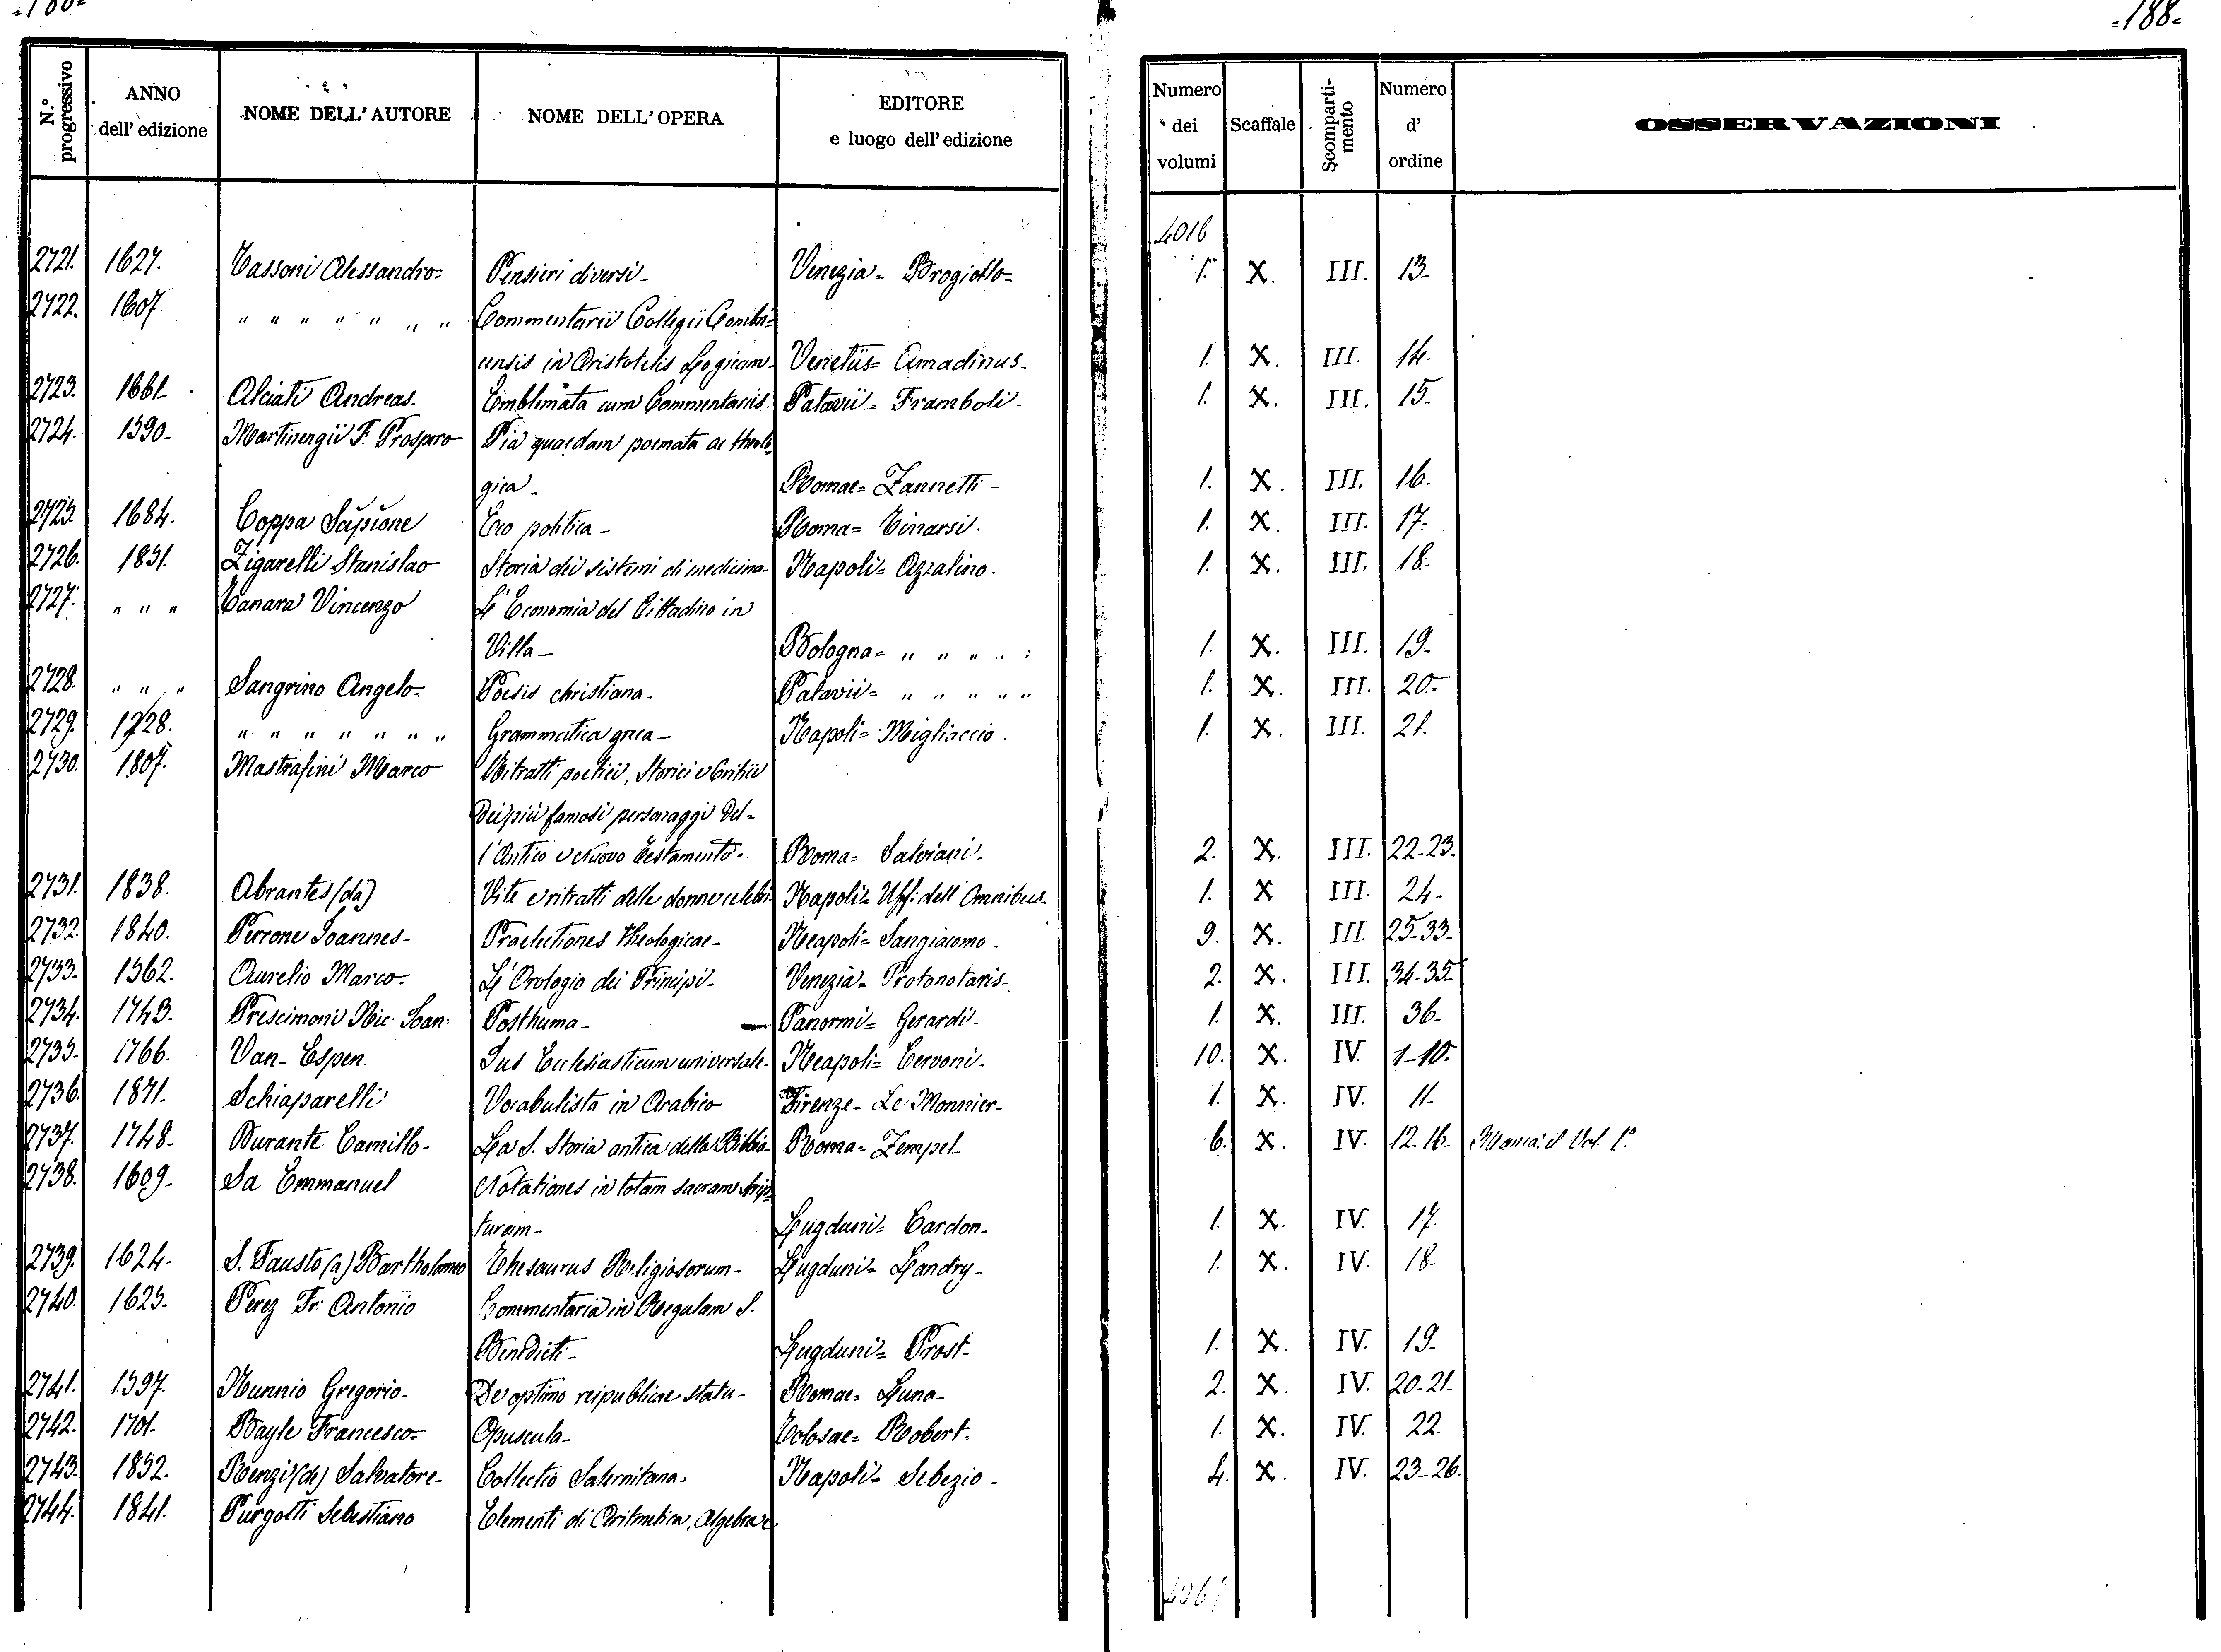 =188=
N.° progressivo ANNO dell' edizione NOME DELL'AUTORE NOME DELL'OPERA EDITORE e luogo dell'edizione Numero dei volumi Scaffale Scomparti-mento Numero d' ordine OSSERVAZIONI
4016
2721. 1627. Tassoni Alessandro= Pensieri diversi- Venezia= Brogiollo= 1. X. III. 13-
2722. 1607. " " " " " " " Commentarii Collegii Conim=
ensis in Aristotelis Logicam- Venetiis= Amadinus- 1. X. III. 14-
2723. 1661- Alciati Andreas- Emblemata cum Commentariis- Patavii= Framboli- 1. X. III. 15-
2724. 1590- Martinengii F. Prospero Pia quaedam poemata ac theolo=
gica- Romae= Zannetti- 1. X. III. 16-
2725. 1684. Coppa Scipione Ero politica- Roma= Tinarsi. 1. X. III. 17-
2726. 1831. Zigarelli Stanislao Storia dei sistemi di medicina- Napoli= Azzalino. 1. X. III. 18-
2727. " " " Tanara Vincenzo L'Economia del Cittadino in
Villa- Bologna= " " " 1. X. III. 19-
2728. " " " Sangrino Angelo- Poesis christiana- Patavii= " " " " " 1. X. III. 20-
2729. 1728. " " " " " " " Grammatica greca- Napoli= Migliaccio. 1. X. III. 21.
2730. 1807. Mastrofini Marco Ritratti poetici, Storici e Critici
dei più famosi personaggi del=
l'Antico e Nuovo Testamento- Roma= Salviani. 2. X. III. 22-23.
2731. 1838. Abrantes (da) Vite e ritratti delle donne celebri- Napoli= Uff: dell'Omnibus- 1. X III. 24-
2732. 1840. Perrone Joannes- Praelectiones theologicae- Neapoli= Sangiacomo. 9. X. III. 25-33-
2733. 1562. Aurelio Marco- L'Orologio dei Principi- Venezia= Protonotaris- 2. X. III. 34-35-
2734. 1743. Prescimoni Nic. Joan: Posthuma- Panormi= Gerardi. 1. X. III. 36-
2735. 1766. Van-Espen. Jus Ecclesiasticum universale- Neapoli= Cervoni. 10. X. IV. 1-10.
2736. 1871. Schiaparelli Vocabulista in Arabico Firenze- Le Monnier- 1. X. IV. 11-
2737. 1748- Durante Camillo- La S. Storia antica della Bibbia- Roma= Zempel- 6. X. IV. 12-16- Manca: il Vol. 1.°
2738. 1609- Sa Emmanuel Notationes in totam sacram Scrip=
turam- Lugduni= Cardon- 1. X. IV. 17.
2739. 1624- S. Fausto (a) Bartholomeo Thesaurus Religiosorum- Lugduni= Landry- 1. X. IV. 18-
2740. 1625- Perez Fr. Antonio Commentaria in Regulam S.
Benedicti- Lugduni= Prost- 1. X. IV. 19-
2741. 1597. Nunnio Gregorio- De optimo reipublicae statu- Romae= Luna- 2. X. IV. 20-21-
2742. 1701- Bayle Francesco- Opuscula- Tolosae= Robert- 1. X. IV. 22.
2743. 1852. Renzi (de) Salvatore- Collectio Salernitana- Napoli= Sebezio- 4. X. IV. 23-26.
2744. 1841. Purgotti Sebastiano Elementi di Aritmetica, Algebra e